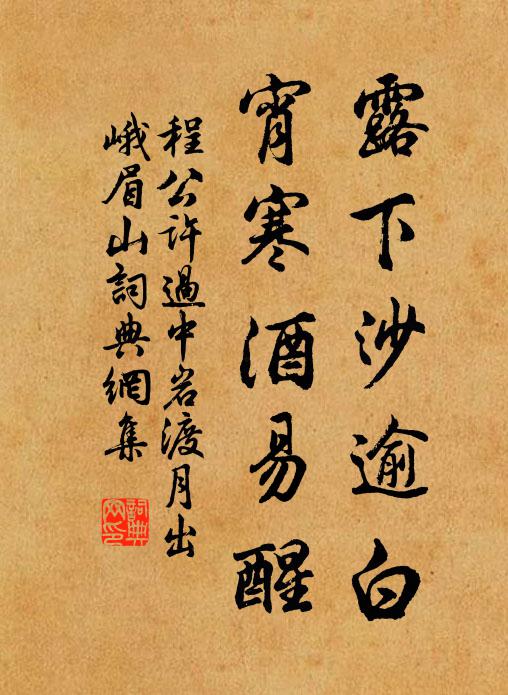 露下沙逾白
宵寒酒易醒
程公许過中岩渡月出
峨眉山詞典網集
詞典
网印